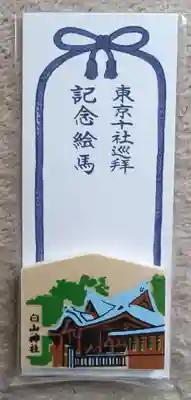 東京十社巡拝
記念絵馬
白山神社